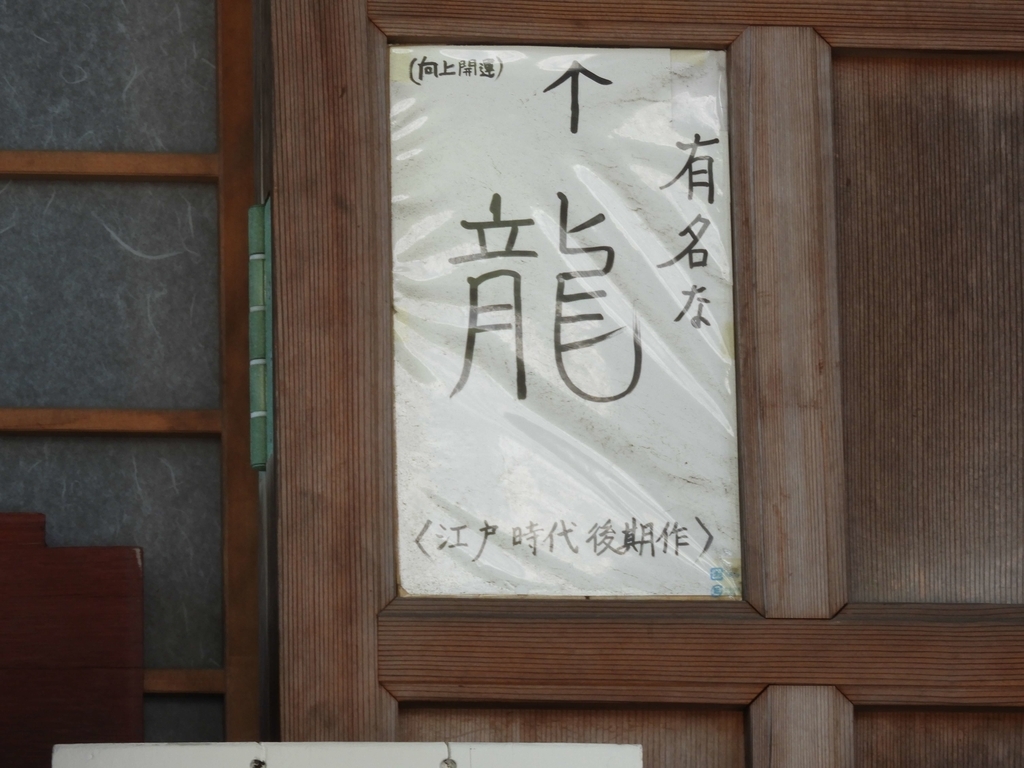 (向上開運)
↑
有名な
龍
〈江戸時代後期作〉